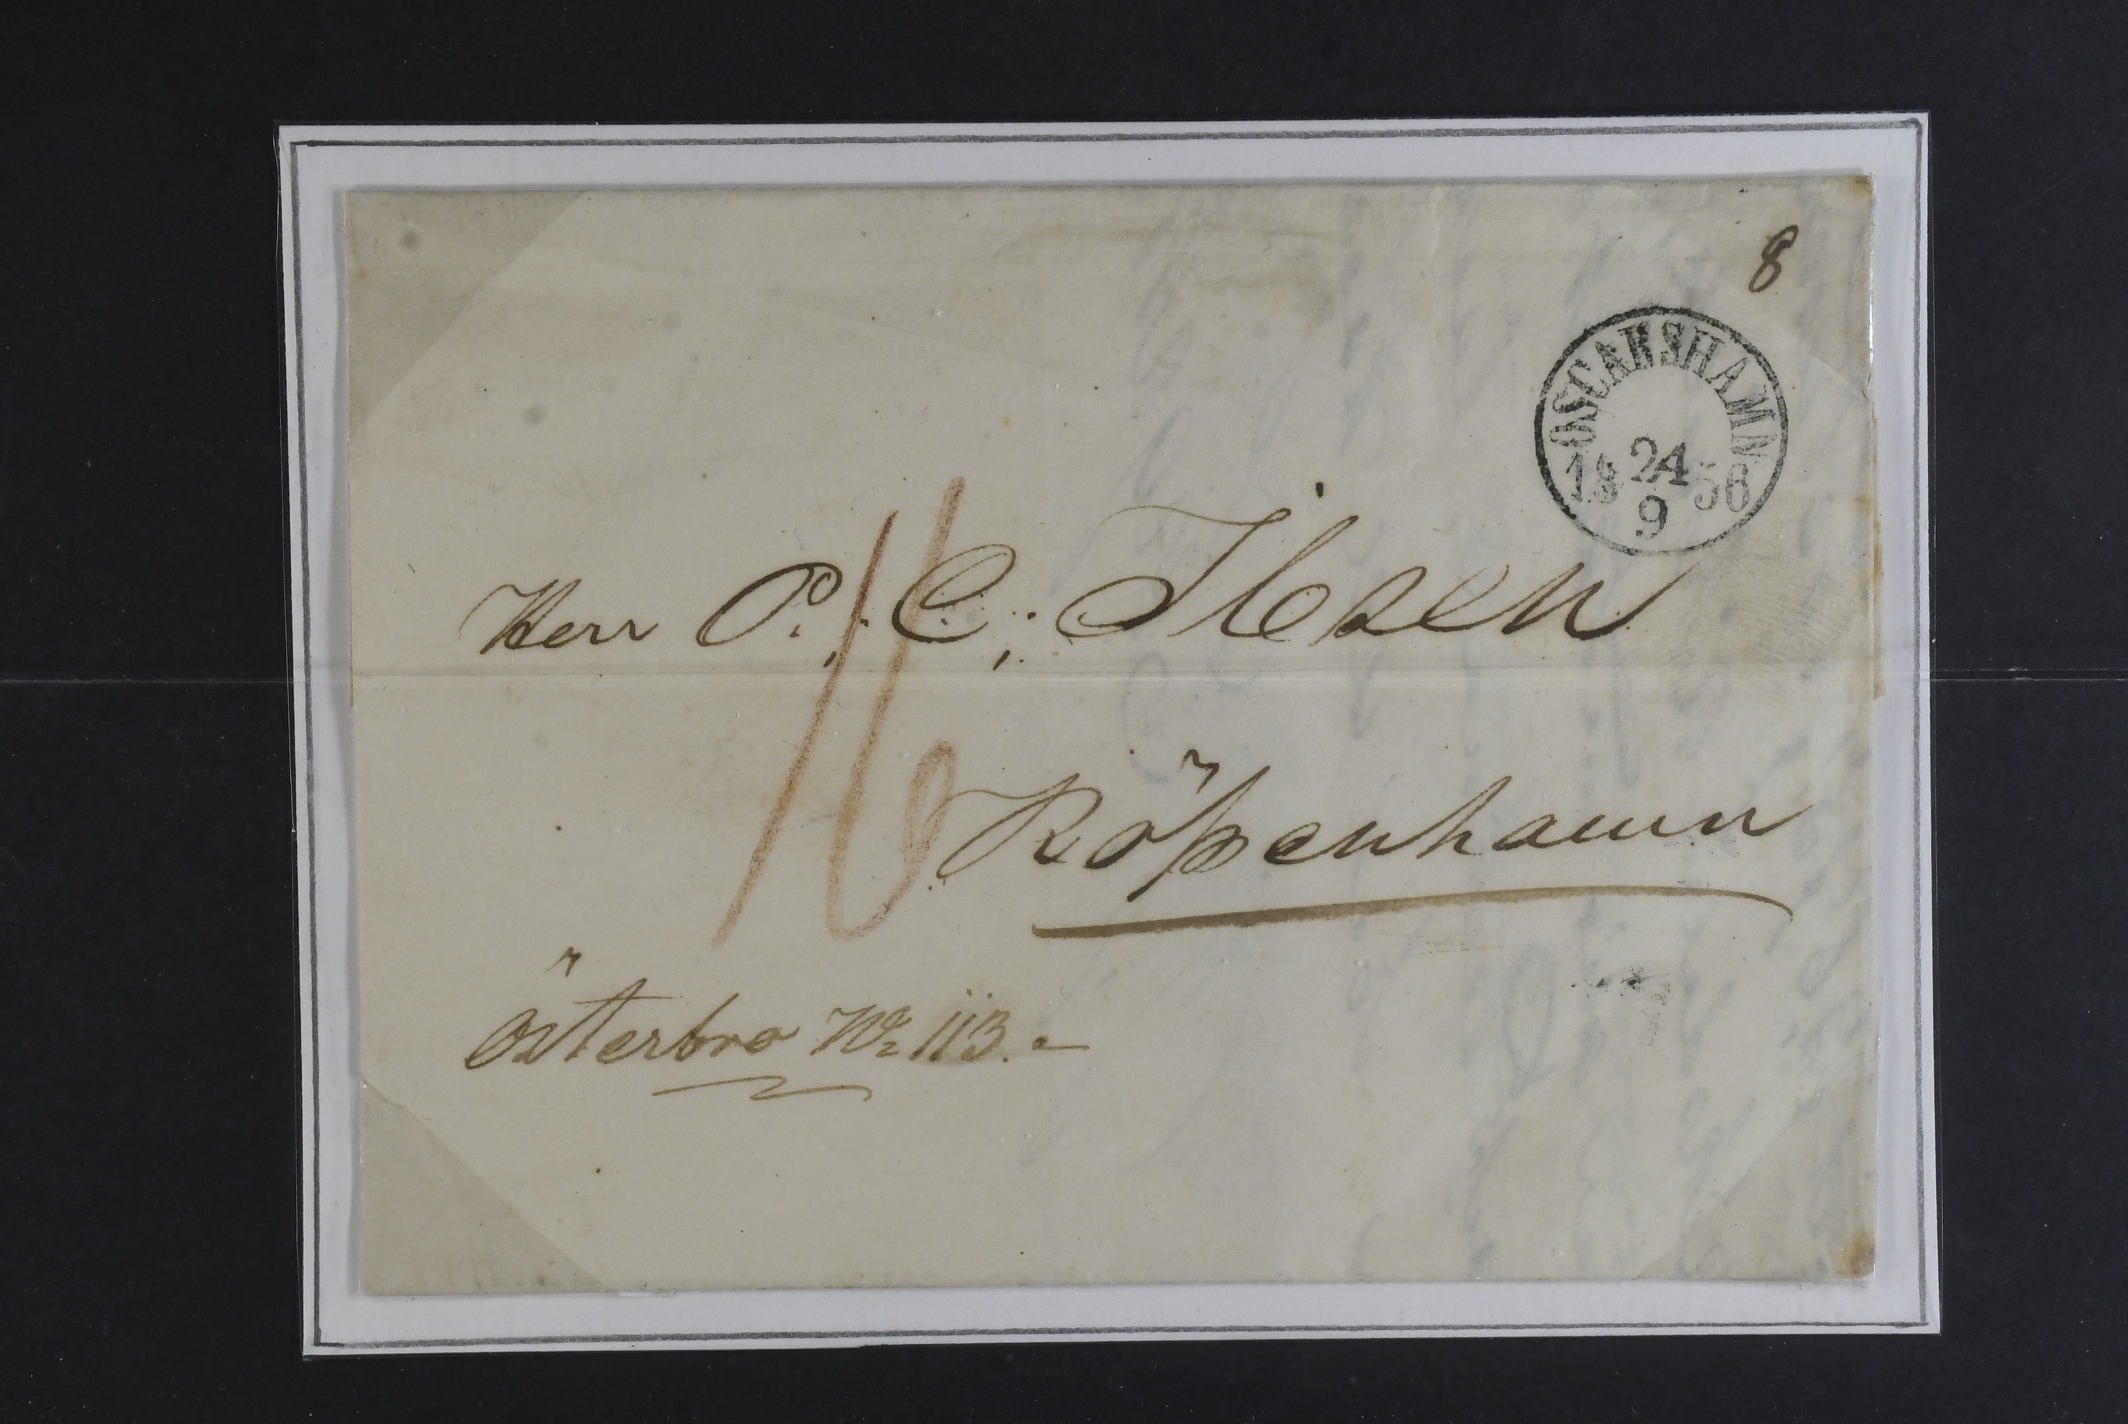 8
OSCARSHAMN
18 24 56
9
Herr P. C. Ibsen
16
Köpenhamn
Österbro No 113.